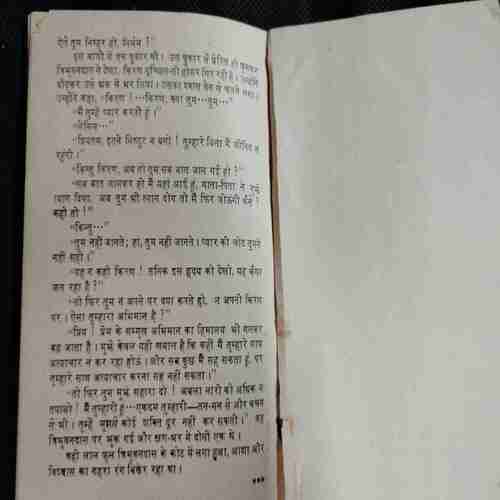 ऐसे तुम निष्ठुर हो, निर्मम ?"
इस वाणी में एक पुकार थी। उस पुकार से प्रेरित हो घूमकर
त्रिभुवनदास ने देखा, किरण मूर्च्छित-सी होकर गिर रही है। उन्होंने
दौड़कर उसे अंक में भर लिया।
उन्होंने कहा, "किरण !···किरण, क्या तुम···तुम···"
"मैं तुम्हें प्यार करती हूं।"
"लेकिन···"
"प्रियतम, इतने निष्ठुर न बनो ! तुम्हारे बिना मैं जीवित न
रहूंगी।"
"किन्तु किरण, अब तो तुम सब बात जान गई हो ?"
"सब बात जानकर ही मैं यहां आई हूं, माता-पिता ने मुझे
त्याग दिया, अब तुम भी त्याग दोगे तो मैं फिर जीऊंगी कैसे ?
कहो तो !"
"किन्तु···"
"तुम नहीं जानते; हां, तुम नहीं जानते। प्यार की चोट तुमने
नहीं सही।"
"यह न कहो किरण ! तनिक इस हृदय को देखो, यह कैसा
जल रहा है ?"
"तो फिर तुम न अपने पर दया करते हो, न अपनी किरण
पर। ऐसा तुम्हारा अभिमान है ?"
"प्रिये ! प्रेम के सम्मुख अभिमान का हिमालय भी गलकर
बह जाता है। मुझे केवल यही खयाल है कि कहीं मैं तुम्हारे साथ
अत्याचार न कर रहा होऊं। और सब कुछ मैं सह सकता हूं, पर
तुम्हारे साथ अत्याचार करना सह नहीं सकता।"
"तो फिर तुम मुझे सहारा दो ! अबला नारी को अधिक न
तपाओ ! मैं तुम्हारी हूं···एकदम तुम्हारी—तन-मन से और वचन
से भी। तुम्हें मुझसे कोई शक्ति दूर नहीं कर सकती।" वह
त्रिभुवनदास पर झुक गई और क्षण-भर में दोनों एक थे।
वही लाल फूल त्रिभुवनदास के कोट में लगा हुआ, आशा और
विश्वास का गहरा रंग बिखेर रहा था।
●●●